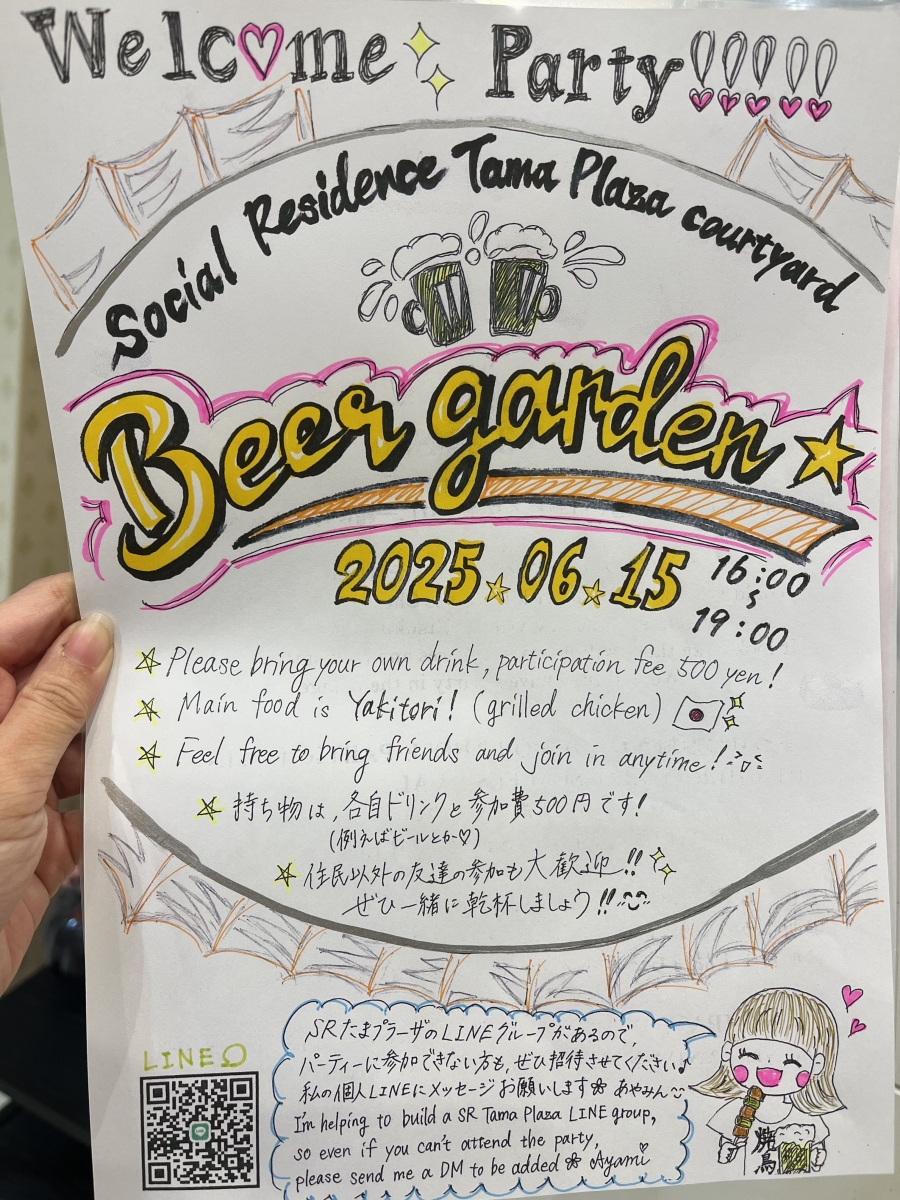 Welc♡me Party!!!!!
Social Residence Tama Plaza courtyard
Beer garden
2025.06.15 16:00
〜
19:00
Please bring your own drink, participation fee 500 yen!
Main food is Yakitori! (grilled chicken)
Feel free to bring friends and join in anytime!
持ち物は、各自ドリンクと参加費500円です!
(例えばビールとか♡)
住民以外の友達の参加も大歓迎!!
ぜひ一緒に乾杯しましょう!!
LINE
SRたまプラーザのLINEグループがあるので、
パーティーに参加できない方も、ぜひ招待させてください♪
私の個人LINEにメッセージお願いします あやみん
I'm helping to build a SR Tama Plaza LINE group,
so even if you can't attend the party,
please send me a DM to be added Ayami
焼鳥